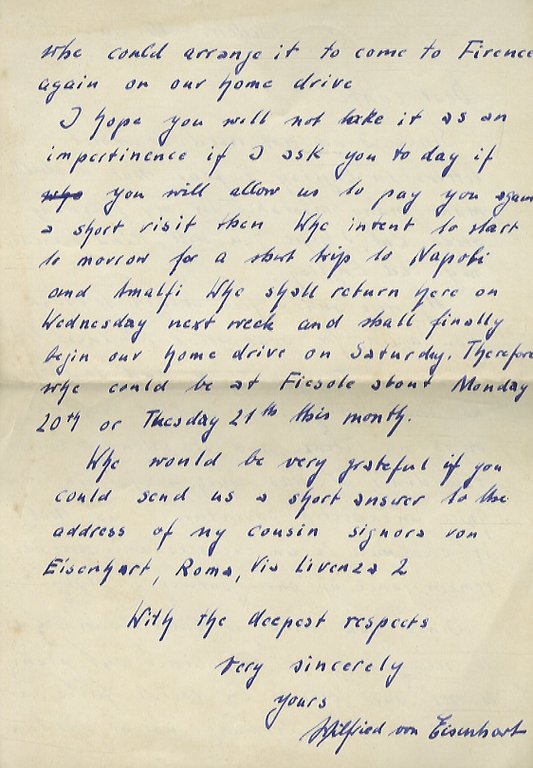 whe could arrange it to come to Firence
again on our home drive
I hope you will not take it as an
impertinence if I ask you to day if
who you will allow us to pay you again
a short visit then Whe intent to start
to morrow for a short trip to Napoli
and Amalfi Whe shall return here on
Wednesday next week and shall finally
begin our home drive on Saturday. Therefore
whe could be at Fiesole about Monday
20th or Tuesday 21th this month.
Whe would be very grateful if you
could send us a short answer to the
address of my cousin signora von
Eisenhart, Roma, Via Livenza 2
With the deepest respects
very sincerely
yours
Wilfried von Eisenhart